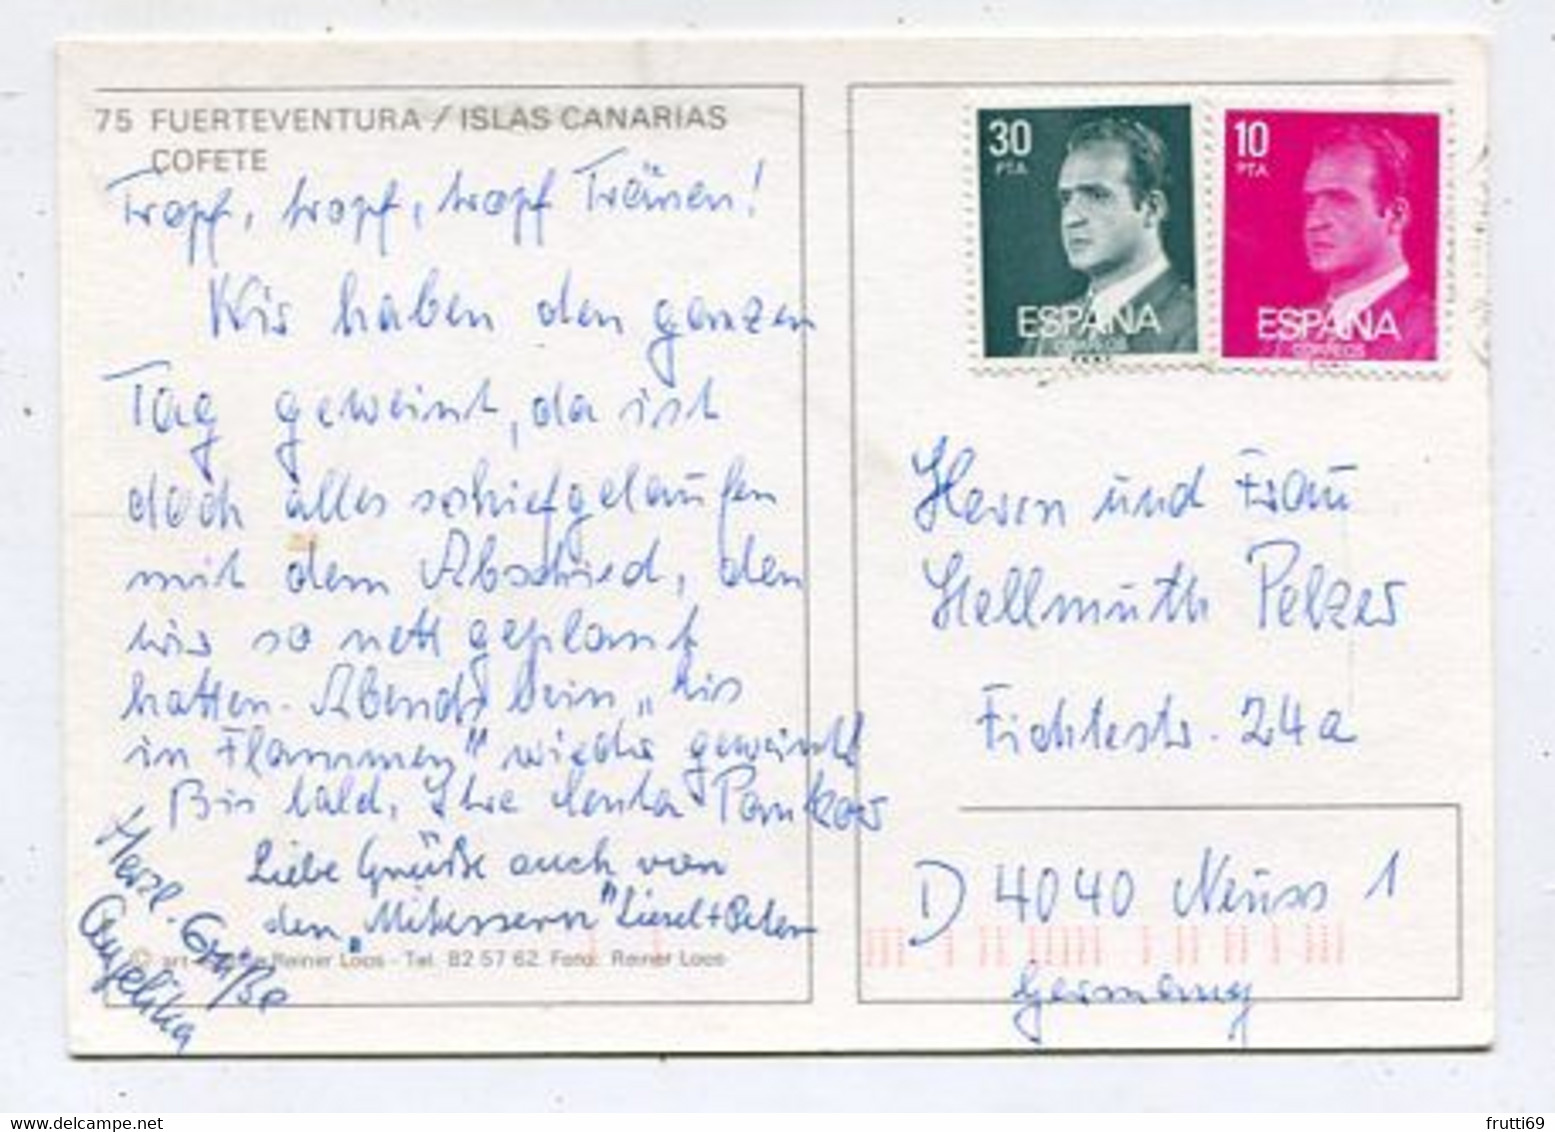 75 FUERTEVENTURA / ISLAS CANARIAS
COFETE
Tropf, tropf, tropf Tränen!
Wir haben den ganzen
Tag geweint, da ist
doch alles schiefgelaufen
mit dem Abschied, den
wir so nett geplant
hatten. Abends beim „Eis
in Flammen" wieder geweint!
Bis bald, Ihre
Liebe Grüße auch von
den „Mitessern" Liesel + Peter
Herzl. Grüße
Angelika
© Reiner Loos - Tel. 82 57 62 Foto: Reiner Loos
30
PTA
ESPAÑA
CORREOS
10
PTA
ESPAÑA
CORREOS
Herrn und Frau
Hellmuth Pelzer
Fichtestr. 24a
D 4040 Neuss 1
Germany
frutti69